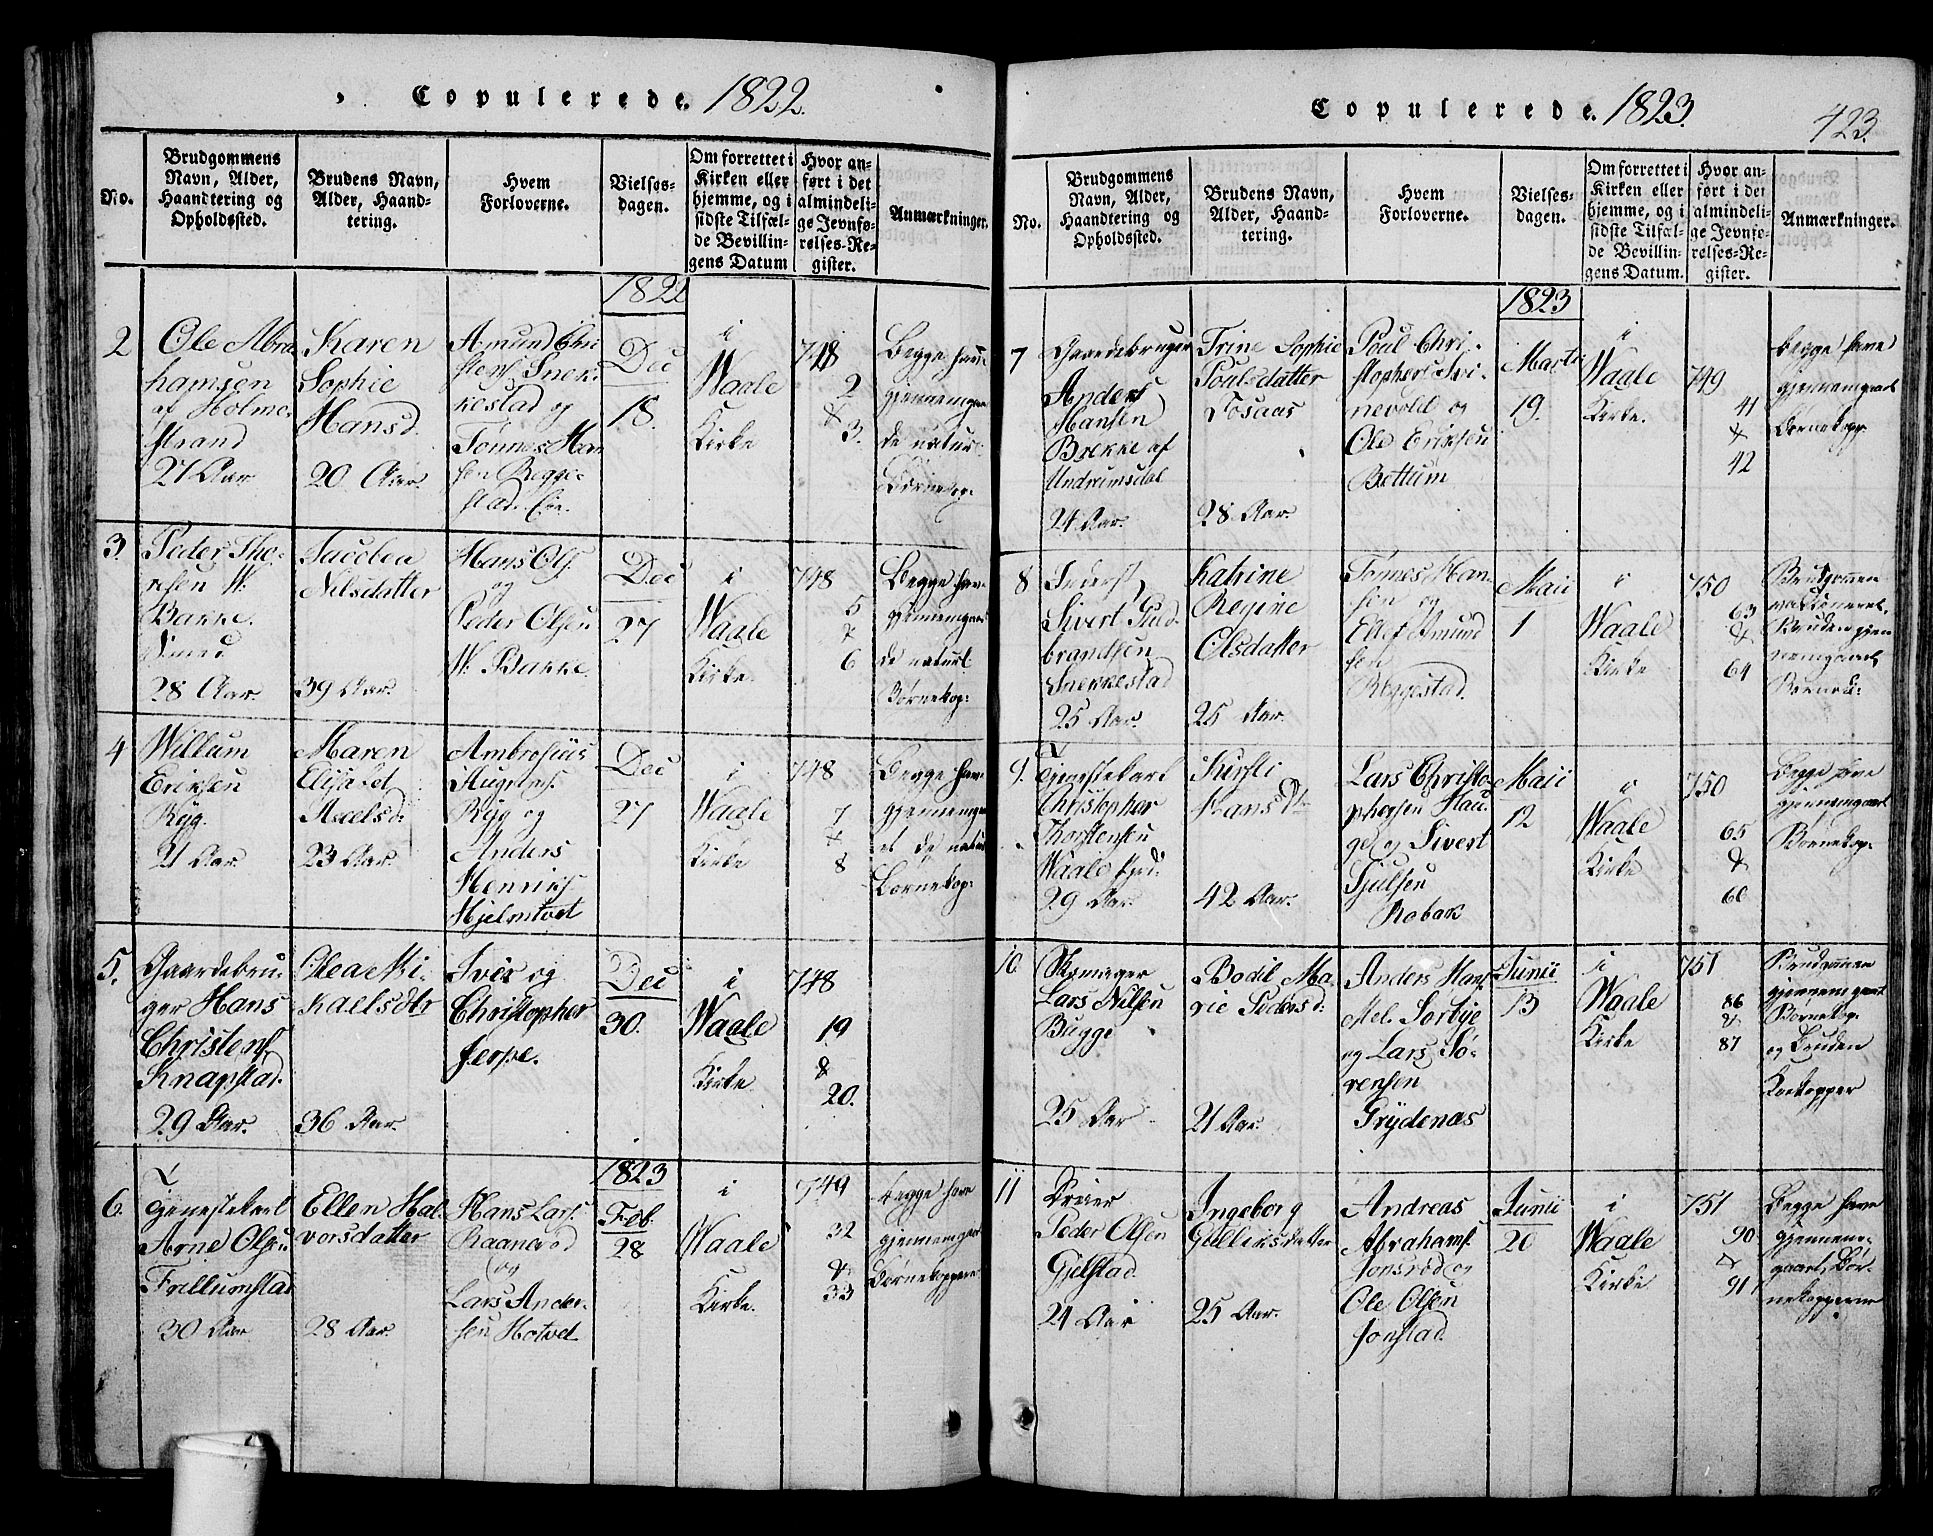 Copulerede. 1822.
No.
Brudgommens
Navn, Alder,
Haandtering og
Opholdssted.
Brudens Navn,
Alder, Haand-
tering.
Hvem
Forloverne.
Vielses-
dagen.
Om forrettet i
Kirken eller
hjemme, og i
sidste Tilfæl-
de Bevillin-
gens Datum
Hvor an-
ført i det
almindeli-
ge Jevnfø-
relses-Re-
gister.
Anmærkninger.
2
Ole Abra
hamsen
af Holme
strand
21 Aar
Karen
Sophie
Hansd.
20 Aar.
Amund Chri
stens Snek-
kestad og
Tønnes Han
sen Regge-
stad
1822
Dec
18.
i
Waale
Kirke
748
2
&
3.
Begge have
gjennemgaa
de naturl.
Børnekop.
3.
Peder Tho-
resen W.
Bakke.
28 Aar
Jacobea
Nilsdatter
39 Aar.
Hans Ols.
og
Peder Olsen
W. Bakke.
Dec
27
i
Waale
Kirke.
748
5
&
6
Begge hav
gjennemgaa
de naturl
Børnekop:
4
Willum
Eriksen
Ryg.
21 Aar
Maren
Elisabet
Axelsd.
23 Aar.
Ambrosius
Augstins.
Ryg og
Anders
Henriks
Hjelmtvet
Dec
27
i
Waale
Kirke
748
7
&
8
Begge hav
gjennemgaa
et de natur
Børnekop:
5.
Gaardebru-
ger Hans
Christens
Knapstad.
29 Aar.
Olea Mi-
kaelsdtr
36 Aar.
Iver og
Christopher
Jerpe.
Dec
30.
i
Waale
Kirke
748
19
&
20.
6.
Tjenestekarl
Arne Olsen
Fallumstad
30 Aar
Ellen Hal-
vorsdatter
28 Aar.
Hans Lars
Raanerød
og
Lars Ander-
sen Hotvet
1823
Feb.
28
i
Waale
Kirke.
749
32
&
33
Begge have
gjennemgaa
Børnekoppene
Copulerede. 1823.
423.
No.
Brudgommens
Navn, Alder,
Haandtering og
Opholdssted.
Brudens Navn,
Alder, Haand-
tering.
Hvem
Forloverne.
Vielses-
dagen.
Om forrettet i
Kirken eller
hjemme, og i
sidste Tilfæl-
de Bevillin-
gens Datum.
Hvor an-
ført i det
almindeli-
ge Jevnfø-
relses-Re-
gister.
Anmærkninger.
7
Gaardebruger
Anders
Hansen
Brekke af
Undrumsdal
24 Aar.
Trine Sophie
Poulsdatter
Tosaas
28 Aar.
Poul Chri-
stophers. Svi-
nevold og
Ole Eriksen
Bettum
1823
Marts
19.
i
Waale
Kirke.
749
41
&
42
begge have
gjennemgaaet
Børnekopp.
8
Inderst
Sivert Gud-
brandsen
Snekkestad
25 Aar.
Katrine
Regine
Olsdatter
25 Aar.
Tønnes Han-
sen og
Ellef Amund
sen
Reggestad.
Maii
1
i
Waale
Kirke
750
63
&
64
Brudgommen
vaksineret,
Bruden gjen
nemgaaet
9.
Tjenestekarl
Christopher
Torstensen
Waale
29 Aar.
Kirsti
Hans Dtr
42 Aar.
Lars Christo
phersen Hau
ge og Sivert
Tjulsen
Robak
Maii
12
i
Waale
Kirke
750
65
&
66
Begge have
gjennemgaaet
Børnekop:
10
Skomager
Lars Nilsen
Bugge
25 Aar
Bodil Ma-
rie Pedersd:
21 Aar.
Anders Hans.
Mel. Sørbye
og Lars Sø-
rensen
Grydenæs
Junii
13
i
Waale
Kirke
751
86
&
87
Brudgommen
gjennemgaaet
Børnekop.
og Bruden
Kokopper
11
Peder Olsen
Gjelstad
24 Aar
Ingeborg
Gulliksdatter
25 Aar.
Andreas
Abrahams.
Jonsrød og
Ole Olsen
Jonstad
Junii
20
i
Waale
Kirke
751
90
&
91
Begge have
gjennem-
gaaet Bør-
nekopperne